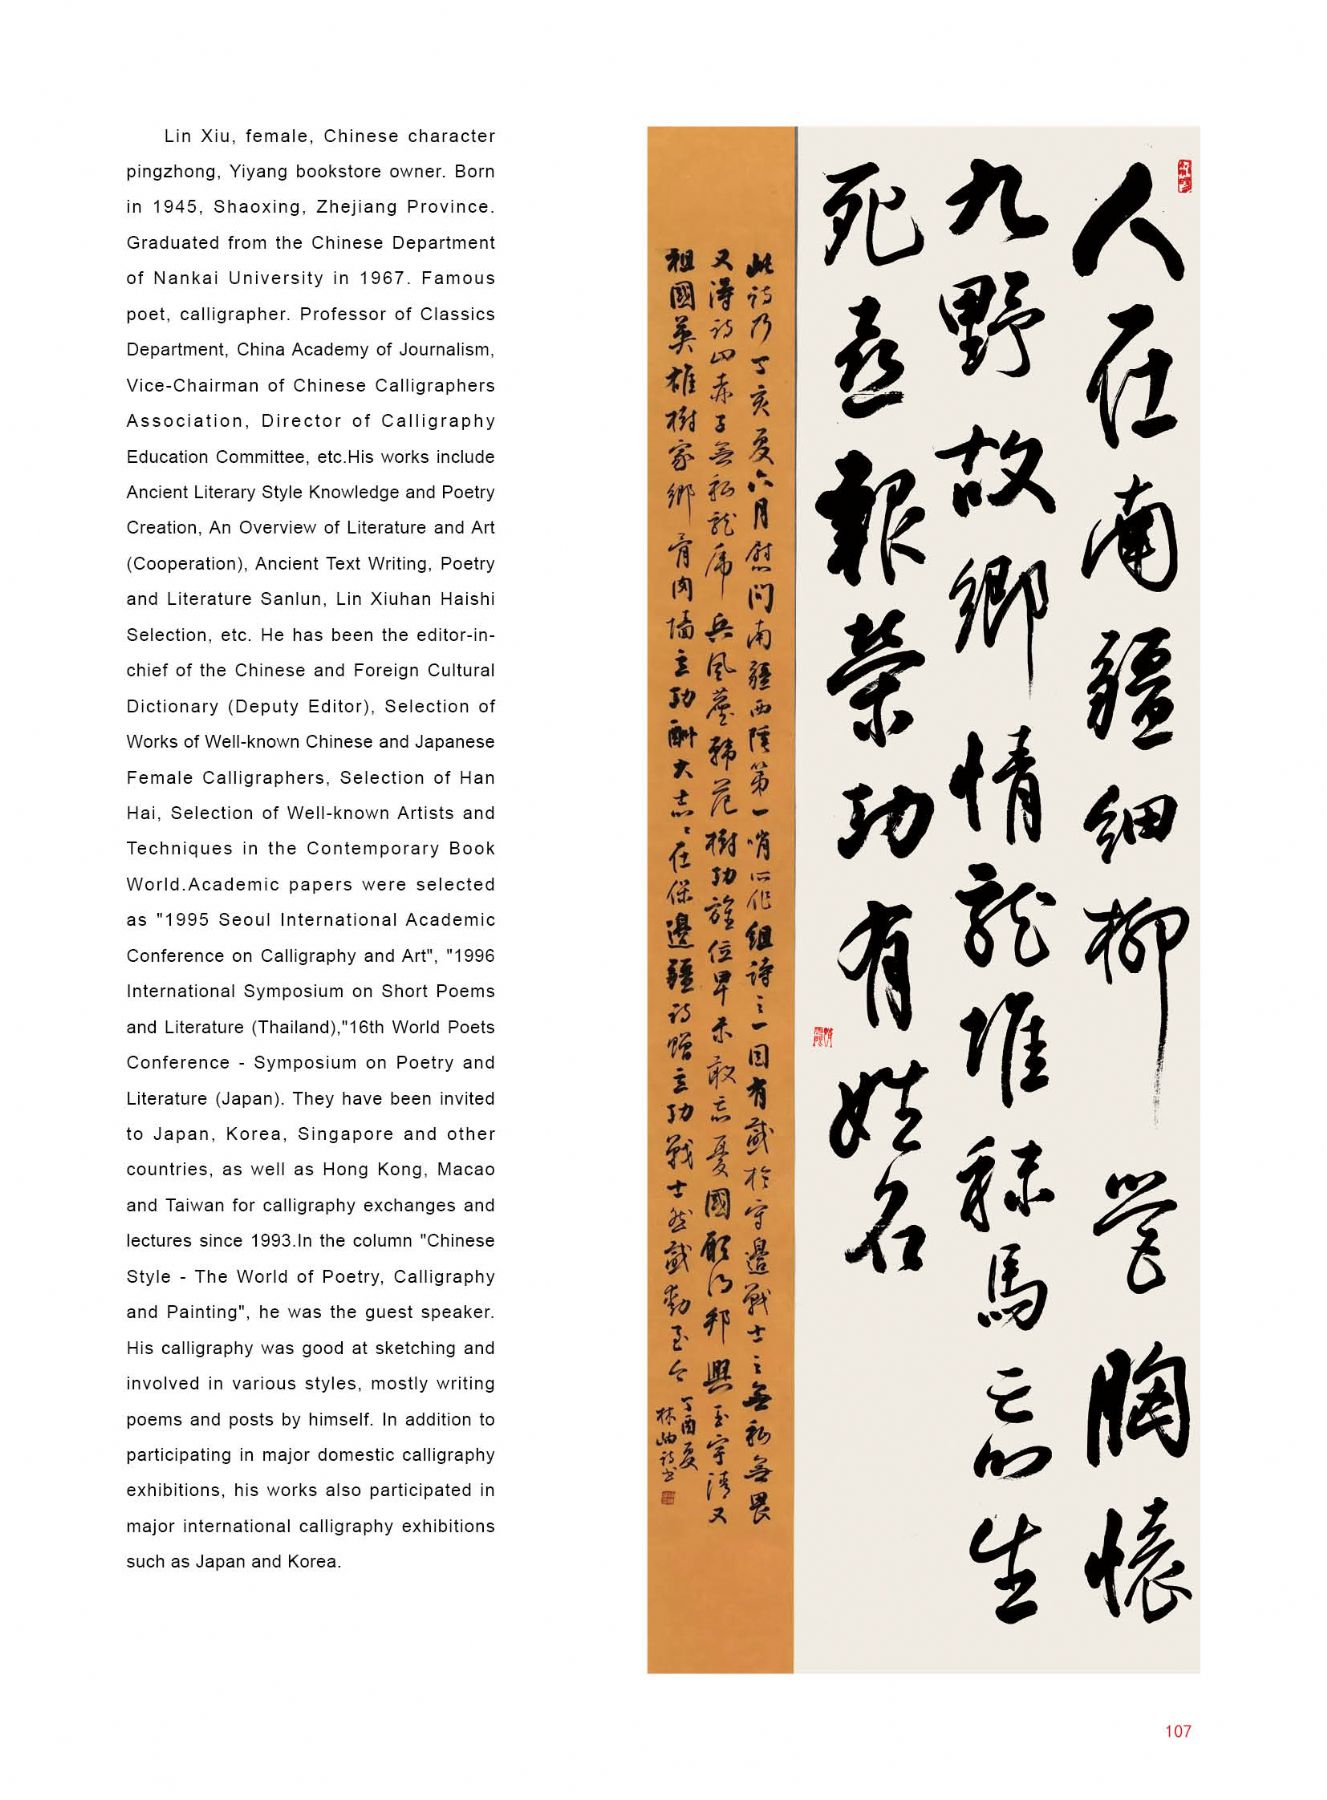 Lin Xiu, female, Chinese character
pingzhong, Yiyang bookstore owner. Born
in 1945, Shaoxing, Zhejiang Province.
Graduated from the Chinese Department
of Nankai University in 1967. Famous
poet, calligrapher. Professor of Classics
Department, China Academy of Journalism,
Vice-Chairman of Chinese Calligraphers
Association, Director of Calligraphy
Education Committee, etc.His works include
Ancient Literary Style Knowledge and Poetry
Creation, An Overview of Literature and Art
(Cooperation), Ancient Text Writing, Poetry
and Literature Sanlun, Lin Xiuhan Haishi
Selection, etc. He has been the editor-in-
chief of the Chinese and Foreign Cultural
Dictionary (Deputy Editor), Selection of
Works of Well-known Chinese and Japanese
Female Calligraphers, Selection of Han
Hai, Selection of Well-known Artists and
Techniques in the Contemporary Book
World.Academic papers were selected
as "1995 Seoul International Academic
Conference on Calligraphy and Art", "1996
International Symposium on Short Poems
and Literature (Thailand),"16th World Poets
Conference - Symposium on Poetry and
Literature (Japan). They have been invited
to Japan, Korea, Singapore and other
countries, as well as Hong Kong, Macao
and Taiwan for calligraphy exchanges and
lectures since 1993.In the column "Chinese
Style - The World of Poetry, Calligraphy
and Painting", he was the guest speaker.
His calligraphy was good at sketching and
involved in various styles, mostly writing
poems and posts by himself. In addition to
participating in major domestic calligraphy
exhibitions, his works also participated in
major international calligraphy exhibitions
such as Japan and Korea.
人在南疆細柳營胸懷
九野故鄉情龍堆秣馬忘生
死丕報榮功有姓名
此詩乃丁亥夏六月慰問南疆西陲第一哨所作組詩之一因有感於守邊戰士之無私無畏
又得詩四赤子無私龍虎兵風塵韓范樹功旌位卑未敢忘憂國願得邦興玉宇清又
祖國英雄樹家鄉骨肉牆立功酬大志志在保邊疆詩贈立功戰士然感動至今
丁酉夏
林岫詩書
107